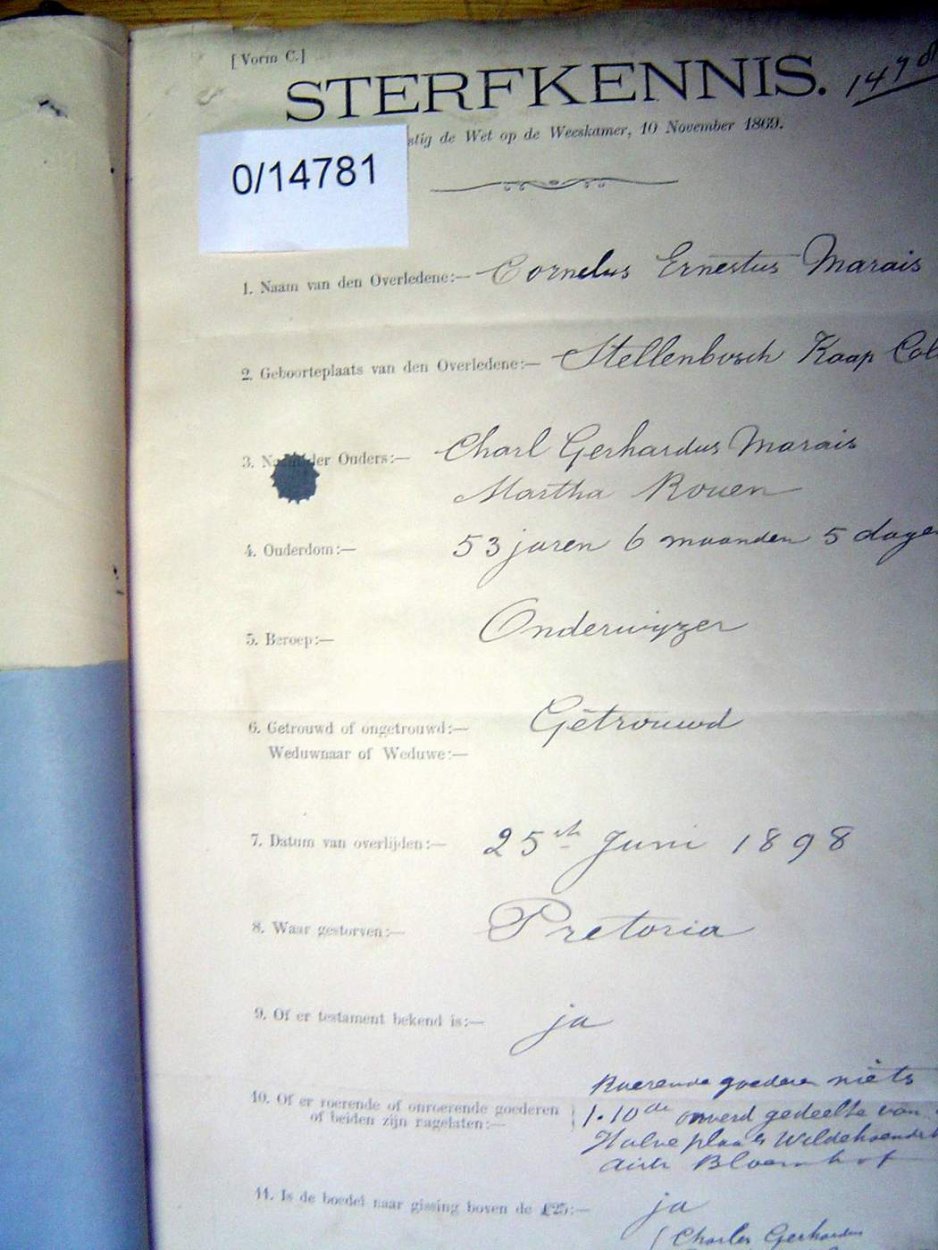 [Vorm C.]
STERFKENNIS.
de Wet op de Weeskamer, 10 November 1869.
0/14781
1. Naam van den Overledene:— Cornelus Ernestus Marais
2. Geboorteplaats van den Overledene:— Stellenbosch Kaap Col
3. der Ouders:— Charl Gerhardus Marais
Martha Rouen
4. Ouderdom:— 53 jaren 6 maanden 5 dage
5. Beroep:— Onderwijzer
6. Getrouwd of ongetrouwd:— Getrouwd
Weduwnaar of Weduwe:—
7. Datum van overlijden:— 25ste Juni 1898
8. Waar gestorven:— Pretoria
9. Of er testament bekend is:— ja
Roerende goederen niets
10. Of er roerende of onroerende goederen 1.10de onverd gedeelte van
of beiden zijn nagelaten:— Halve plaats
distr Bloemhof
11. Is de boedel naar gissing boven de £25:— ja
Charles Gerhardus